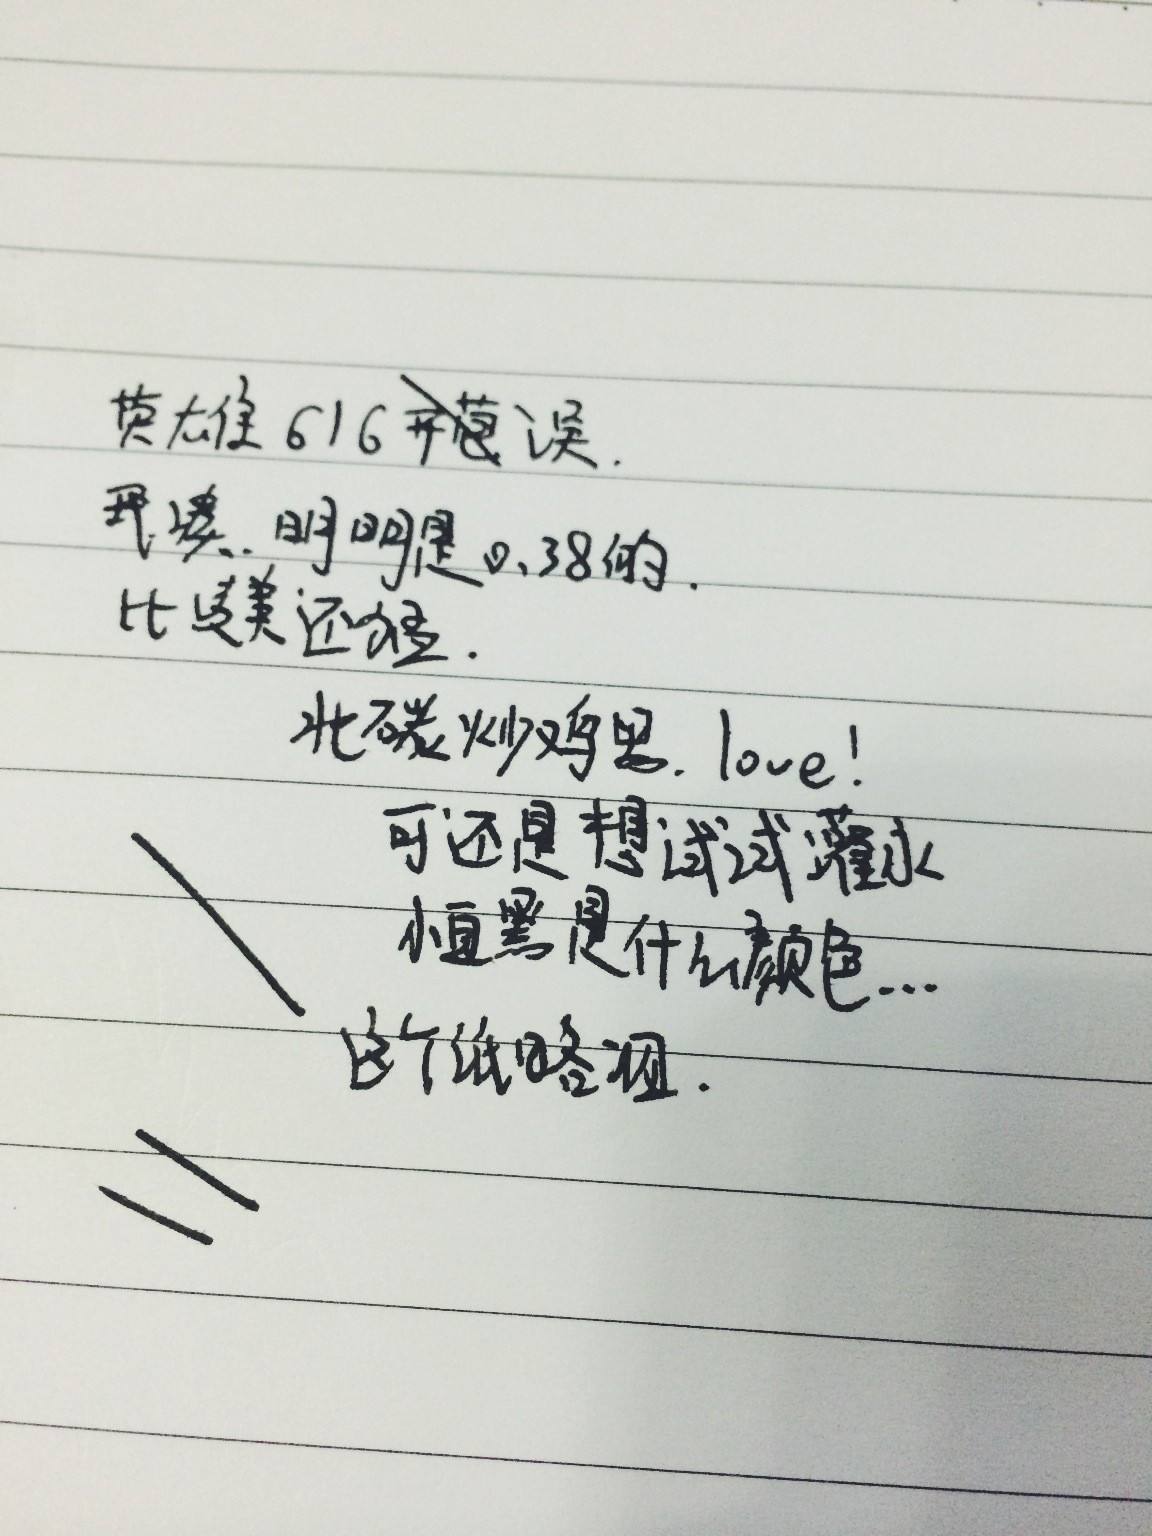 英雄616 误.
明明是0.38的.
比 美还 .
北碳炒鸡黑. love!
可还是想试试灌水
恒黑是什么颜色...
这个纸略洇.